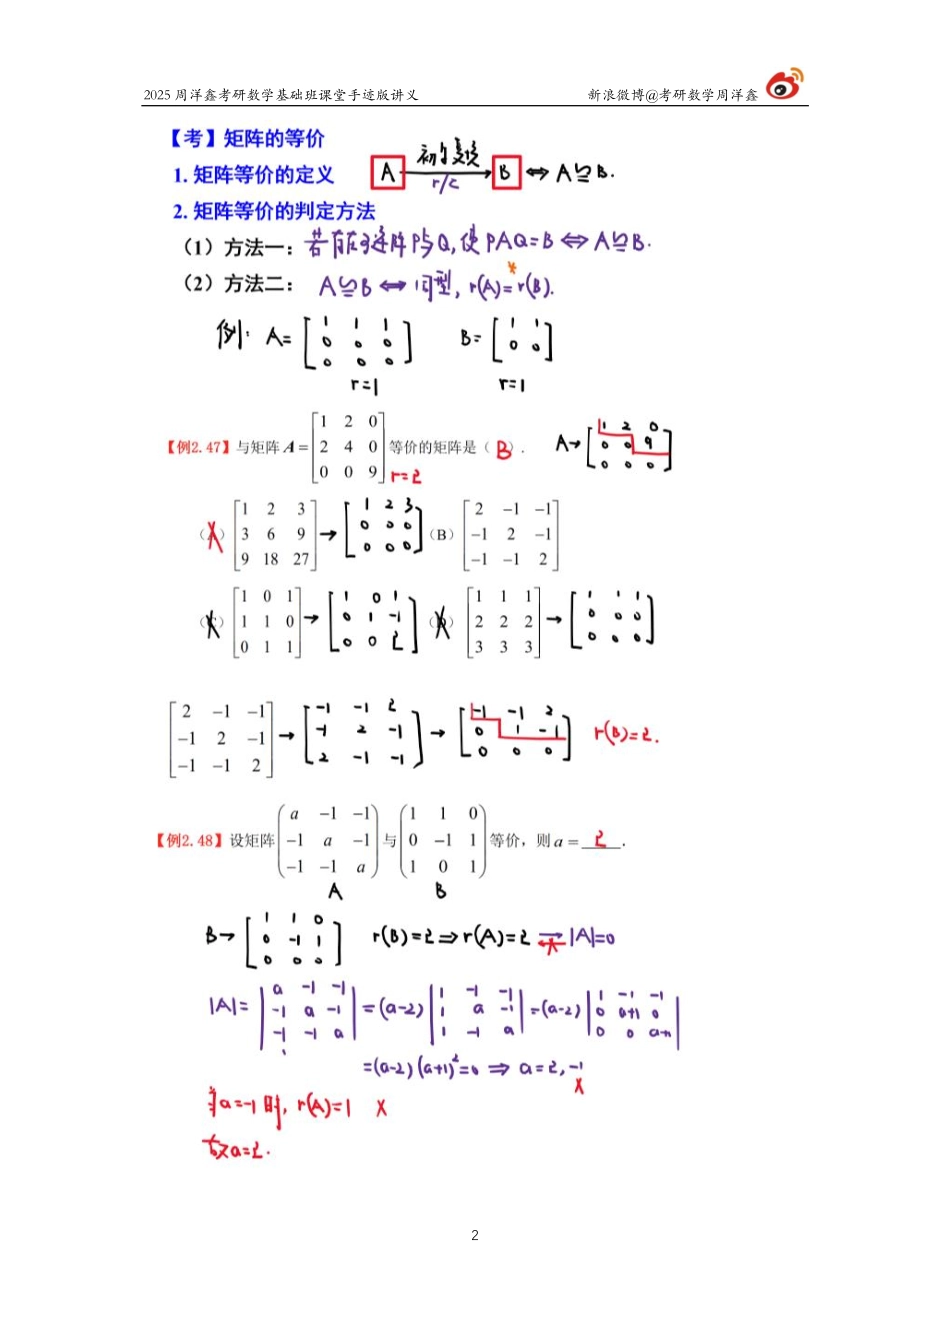 2025 周洋鑫考研数学基础班课堂手迹版讲义 新浪微博@考研数学周洋鑫
【考】矩阵的等价
1. 矩阵等价的定义 A 初等变换 r/c B ⇔ A≅B.
2. 矩阵等价的判定方法
（1）方法一：若存在可逆阵P与Q, 使PAQ=B ⇔ A≅B.
（2）方法二： A≅B ⇔ 同型, r(A)=r(B).
例: A= [1 1 1; 0 0 0; 0 0 0] B= [1 1; 0 0]
r=1 r=1
【例2.47】与矩阵 A = [1 2 0; 2 4 0; 0 0 9] 等价的矩阵是（ B ）. r=2 A→ [1 2 0; 0 0 9; 0 0 0]
[1 2 3; 3 6 9; 9 18 27] → [1 2 3; 0 0 0; 0 0 0] （B） [2 −1 −1; −1 2 −1; −1 −1 2]
[1 0 1; 1 1 0; 0 1 1] → [1 0 1; 0 1 -1; 0 0 2] [1 1 1; 2 2 2; 3 3 3] → [1 1 1; 0 0 0; 0 0 0]
[2 −1 −1; −1 2 −1; −1 −1 2] → [-1 -1 2; -1 2 -1; 2 -1 -1] → [-1 -1 2; 0 1 -1; 0 0 0] r(B)=2.
【例2.48】设矩阵 (a −1 −1; −1 a −1; −1 −1 a) 与 (1 1 0; 0 −1 1; 1 0 1) 等价，则 a = 2 .
A B
B→ [1 1 0; 0 -1 1; 0 0 0] r(B)=2 ⇒ r(A)=2 ⇒ |A|=0
|A|= |a -1 -1; -1 a -1; -1 -1 a| =(a-2) |1 -1 -1; 1 a -1; 1 -1 a| =(a-2) |1 -1 -1; 0 a+1 0; 0 0 a+1|
=(a-2)(a+1)²=0 ⇒ a=2, -1
当a=-1时, r(A)=1 ×
故a=2.
2